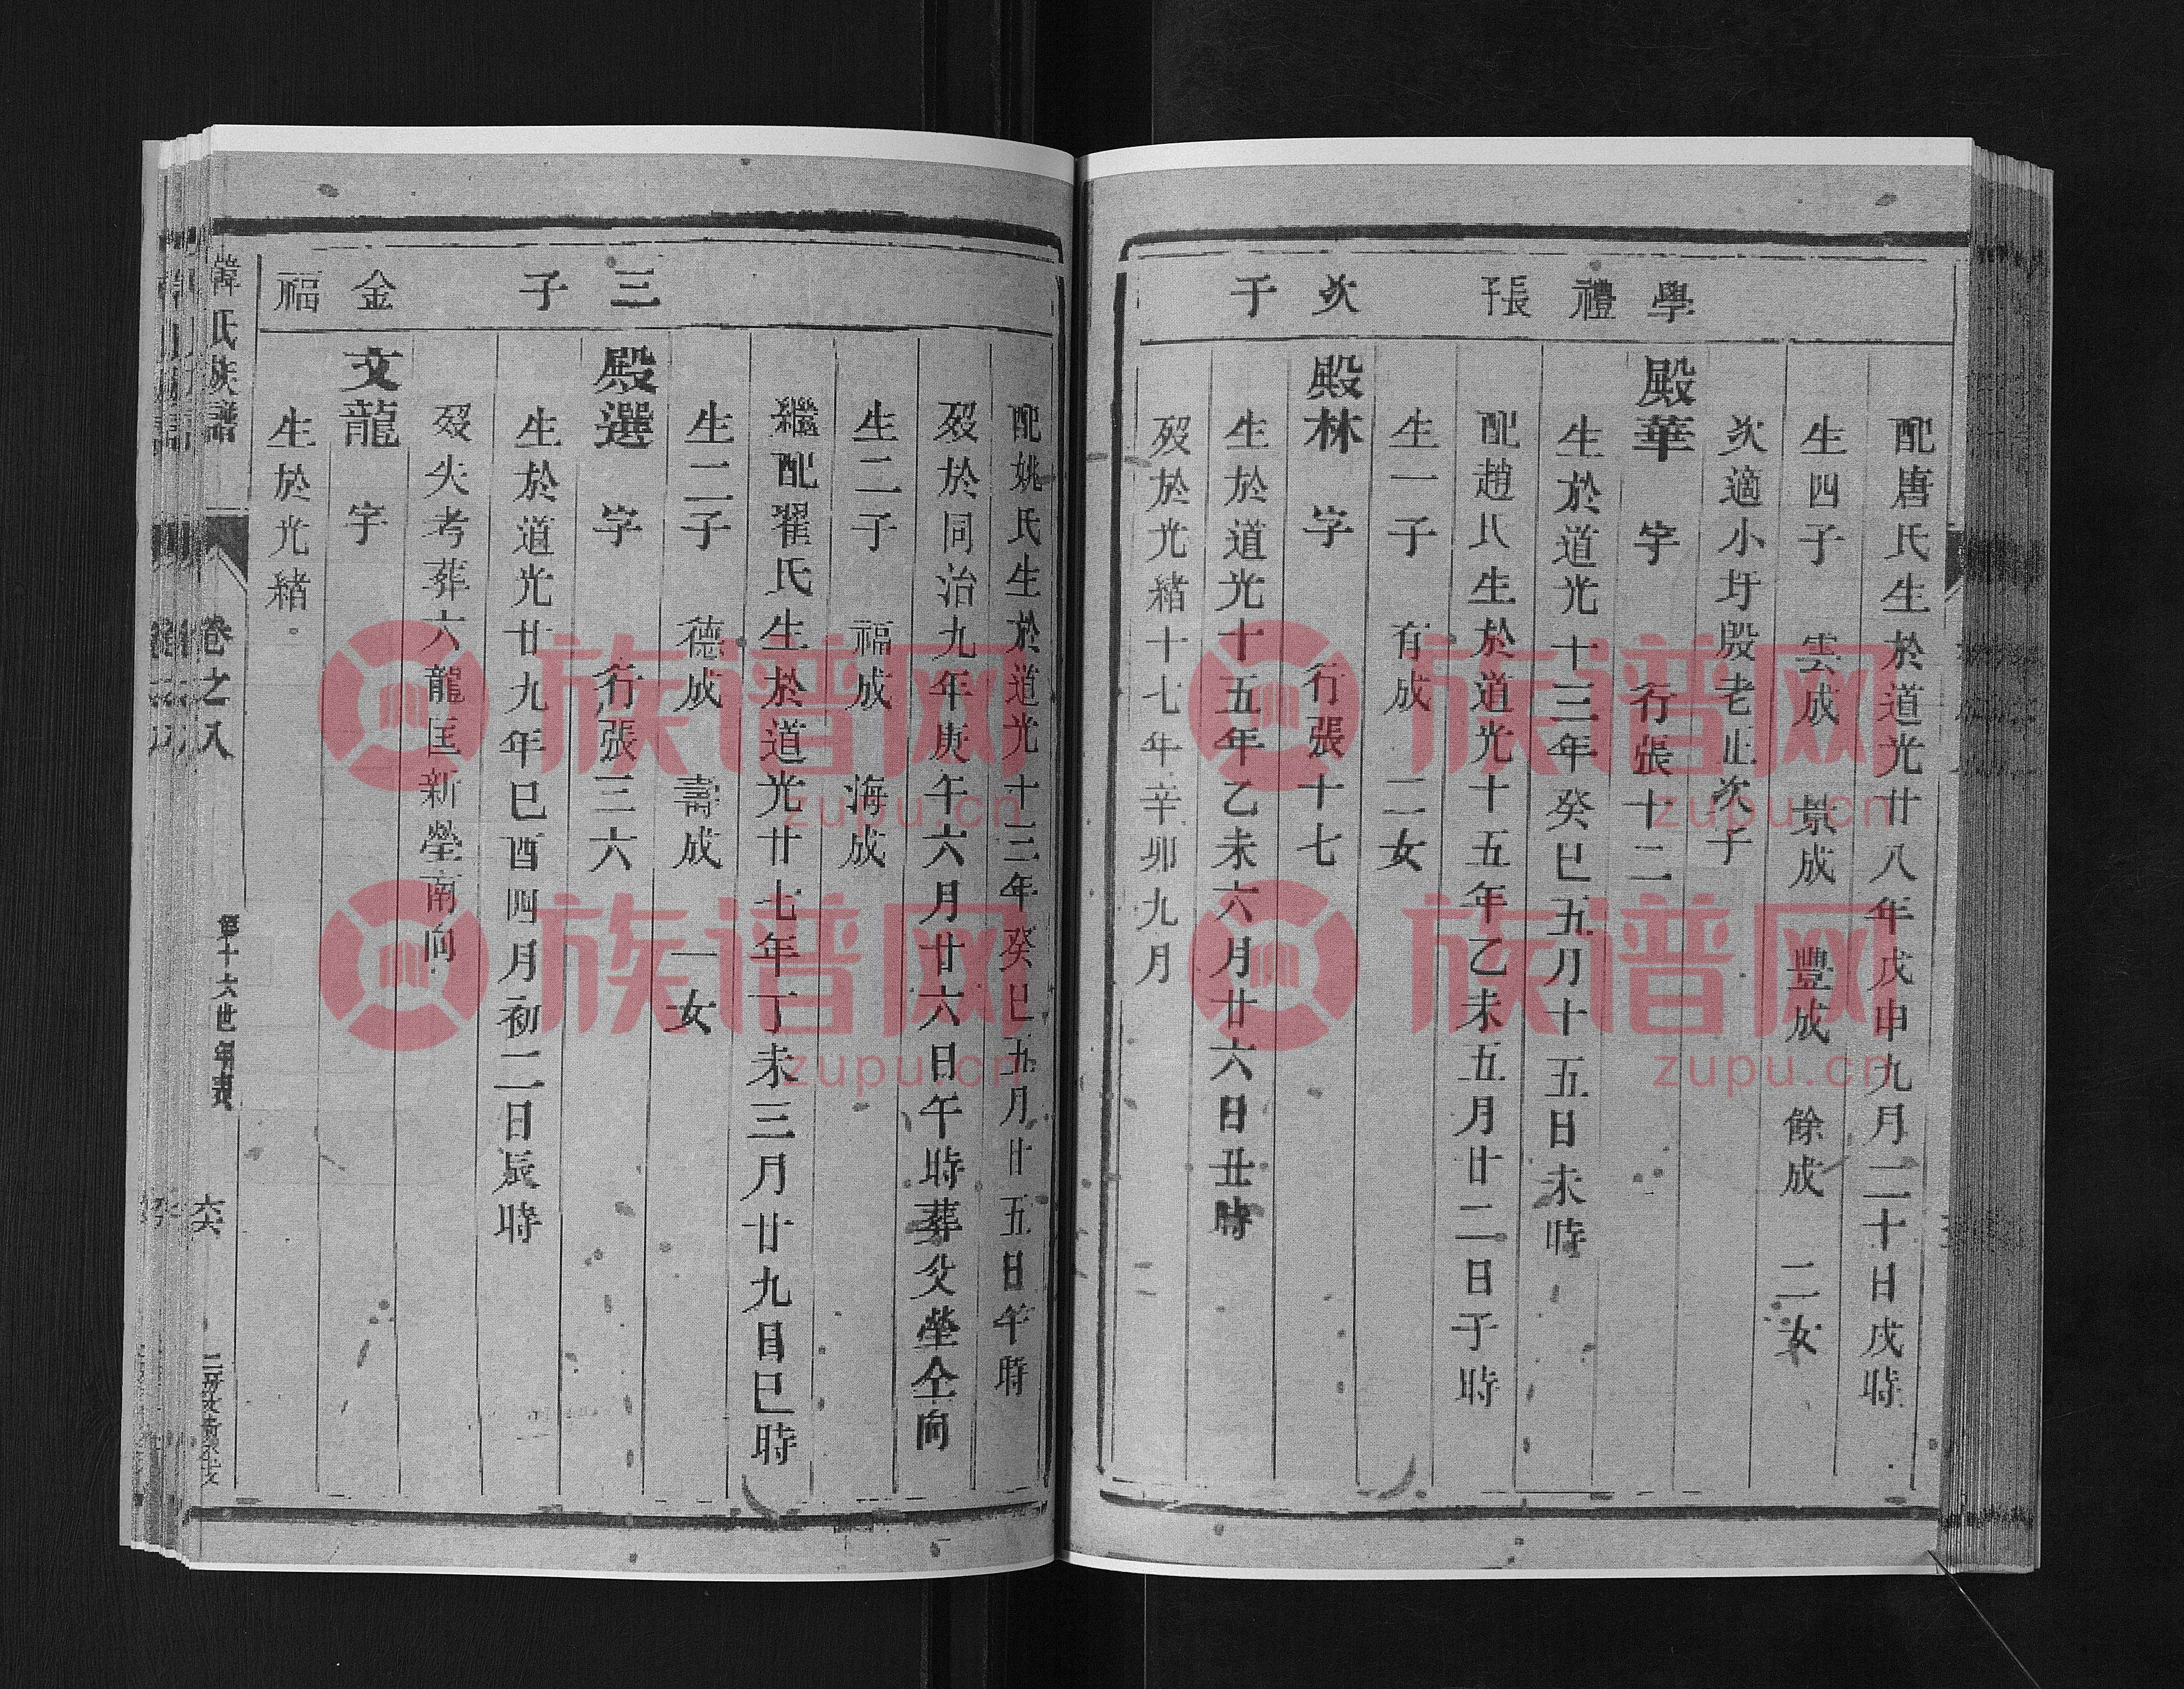 學禮張
次子
配唐氏生於道光廿八年戊申九月二十日戌時
生四子　雲成　景成　豐成　餘成　二女
次適小圩殷老止次子
殿華　字　行張十二
生於道光十三年癸巳五月十五日未時
配趙氏生於道光十五年乙未五月廿二日子時
生一子　有成　二女
殿林　字　行張十七
生於道光十五年乙未六月廿六日丑時
歿於光緒十七年辛卯九月
三子
金福
配姚氏生於道光十三年癸巳五月廿五日午時
歿於同治九年庚午六月廿六日午時葬父塋仝向
生二子　福成　海成
繼配翟氏生於道光廿七年丁未三月廿九日巳時
生二子　德成　壽成　一女
殿選　字　行張三六
生於道光廿九年巳酉四月初二日辰時
歿失考葬六龍匡新塋南向
文龍　字
生於光緒
韓氏族譜　卷之八　第十六世年表　六六
族谱网
zupu.cn
族谱网
zupu.cn
族谱网
zupu.cn
族谱网
zupu.cn